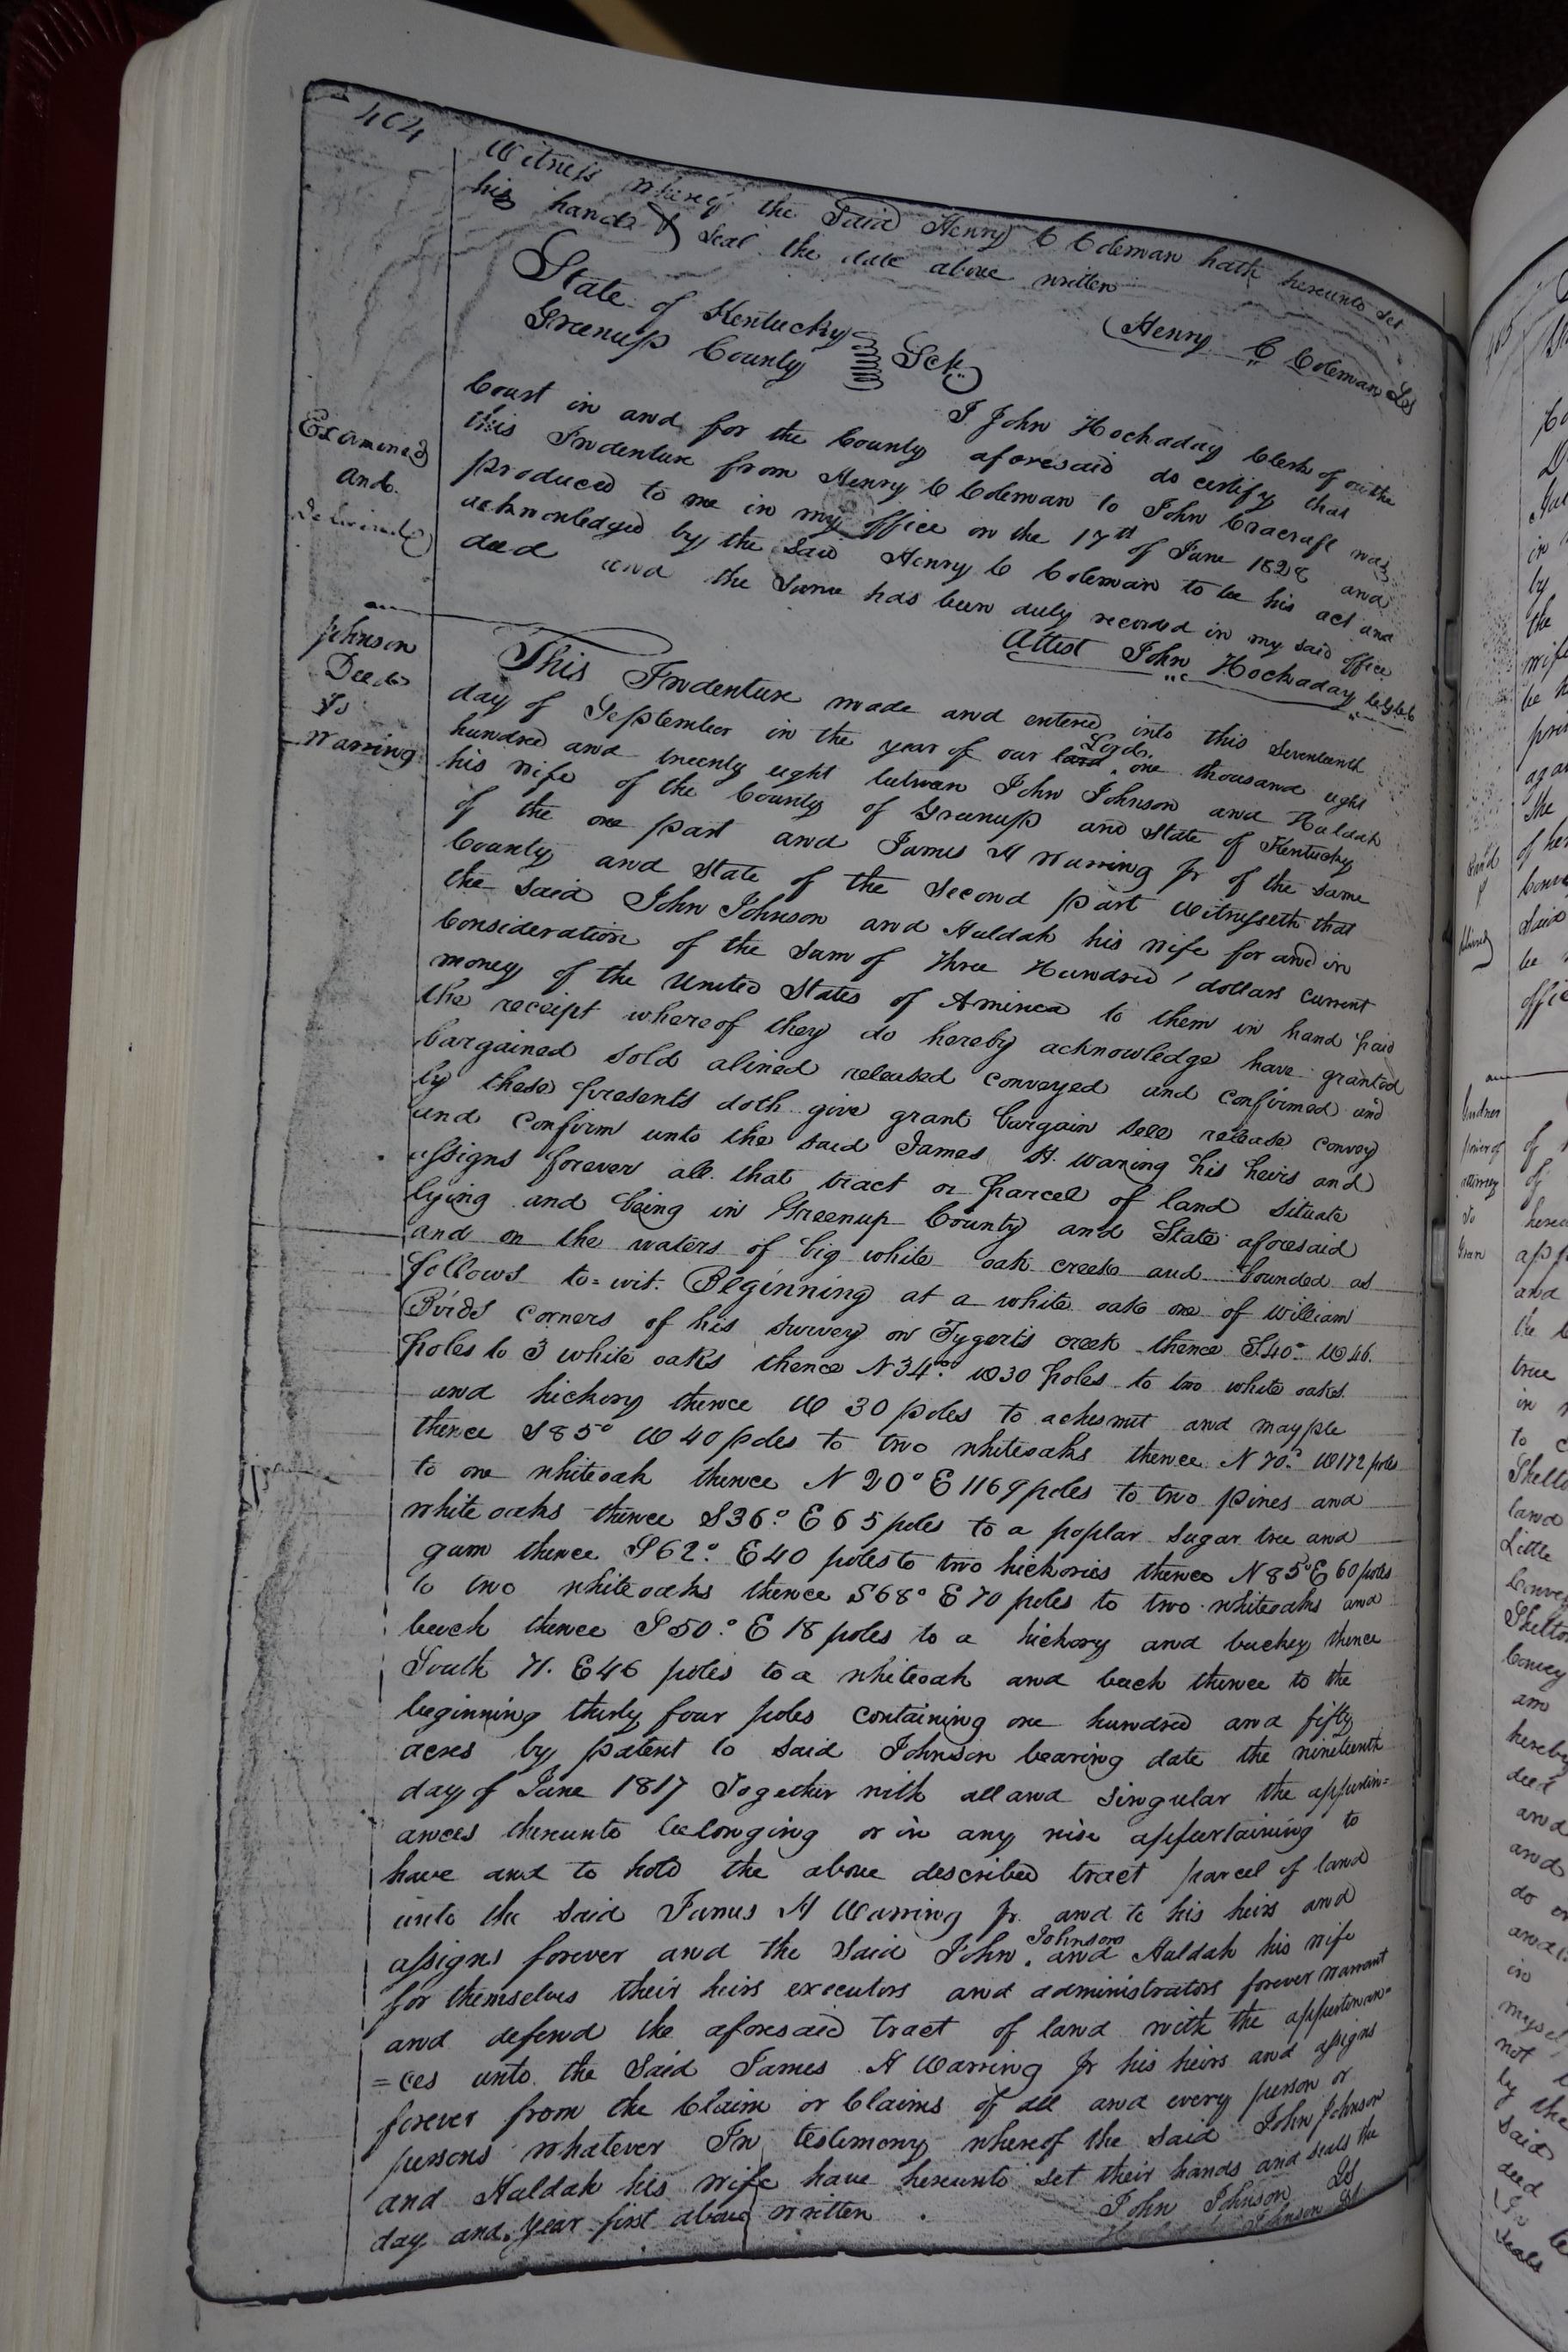 404
Witness whereof the Said Henry C Coleman hath hereunto set
his hand & Seal the date above written
Henry C Coleman LS
State of Kentucky
Greenup County Sct
I John Hockaday Clerk of the
Court in and for the County aforesaid do certify that
this Indenture from Henry C Coleman to John Cracraft was
produced to me in my office on the 17th of June 1828 and
acknowledged by the Said Henry C Coleman to be his act and
deed and the Same has been duly recorded in my said office
Attest John Hockaday
Examined
and
Delivered
Johnson
Deed
To
Warring
This Indenture made and entered into this Seventeenth
day of September in the year of our land Lord one thousand eight
hundred and twenty eight between John Johnson and Huldah
his wife of the County of Greenup and State of Kentucky
of the one part and James H Warring Jr of the same
County and State of the Second part Witnesseth that
the Said John Johnson and Huldah his wife for and in
Consideration of the Sum of Three Hundred dollars current
money of the United States of America to them in hand paid
the receipt whereof they do hereby acknowledge have granted
bargained sold alined released conveyed and confirmed and
by these presents doth give grant bargain sell release convey
and confirm unto the said James H. Waring his heirs and
assigns forever all that tract or parcel of land situate
lying and being in Greenup County and State aforesaid
and on the waters of big white oak creek and bounded as
follows to=wit. Beginning at a white oak one of William
Birds corners of his survey on Tygerts creek thence S40° W46.
poles to 3 white oaks thence N34° W30 poles to two white oaks
and hickory thence W 30 poles to achesnut and mayple
thence S85° W 40 poles to two whiteoaks thence N 70° W172 poles
to one whiteoak thence N 20° E 116 9 poles to two pines and
white oaks thence S36° E 65 poles to a poplar sugar tree and
gum thence S62° E40 poles to two hickories thence N85°E 60 poles
to two whiteoaks thence S68° E 70 poles to two whiteoaks and
beech thence S50° E 18 poles to a hickory and buckey thence
South 71. E46 poles to a whiteoak and beach thence to the
beginning thirty four poles containing one hundred and fifty
acres by patent to said Johnson bearing date the nineteenth
day of June 1817 Together with all and singular the appurtin=
ances thereunto belonging or in any wise appertaining to
have and to hold the above described tract parcel of land
unto the said James H Warring Jr. and to his heirs and
assigns forever and the Said John Johnson and Huldah his wife
for themselves their heirs executors and administrators forever warrant
and defend the aforesaid tract of land with the appurtenan=
=ces unto the Said James H Warring Jr his heirs and assigns
forever from the Claim or Claims of all and every person or
persons whatever In testimony whereof the said John Johnson
and Huldah his wife have hereunto set their hands and seals the
day and year first above written
John Johnson LS
Johnson LS